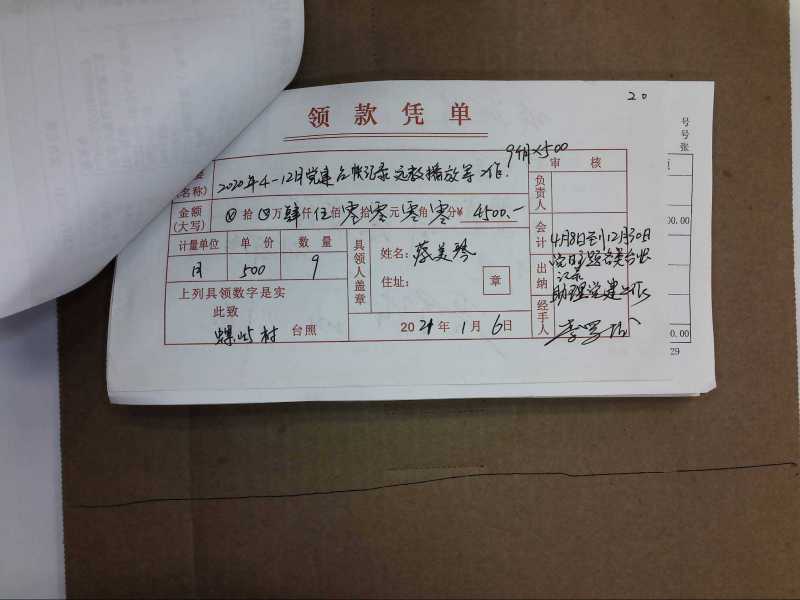 20
领款凭单
9个月×500
要
(名称)
2020年4-12月党建台帐记录远教播放等工作.
审核
金额
(大写)
⊗拾⊗万肆仟伍佰零拾零元零角零分¥ 4500.—
计量单位 单价 数量
月 500 9
上列具领数字是实
此致
台照
具领人盖章
姓名: 蔡美琴
住址:
章
2021年1月6日
负责人
会计
出纳
经手人
4月8日到12月30日
记录
助理党建工作
号
号
张
00.00
0.00
29